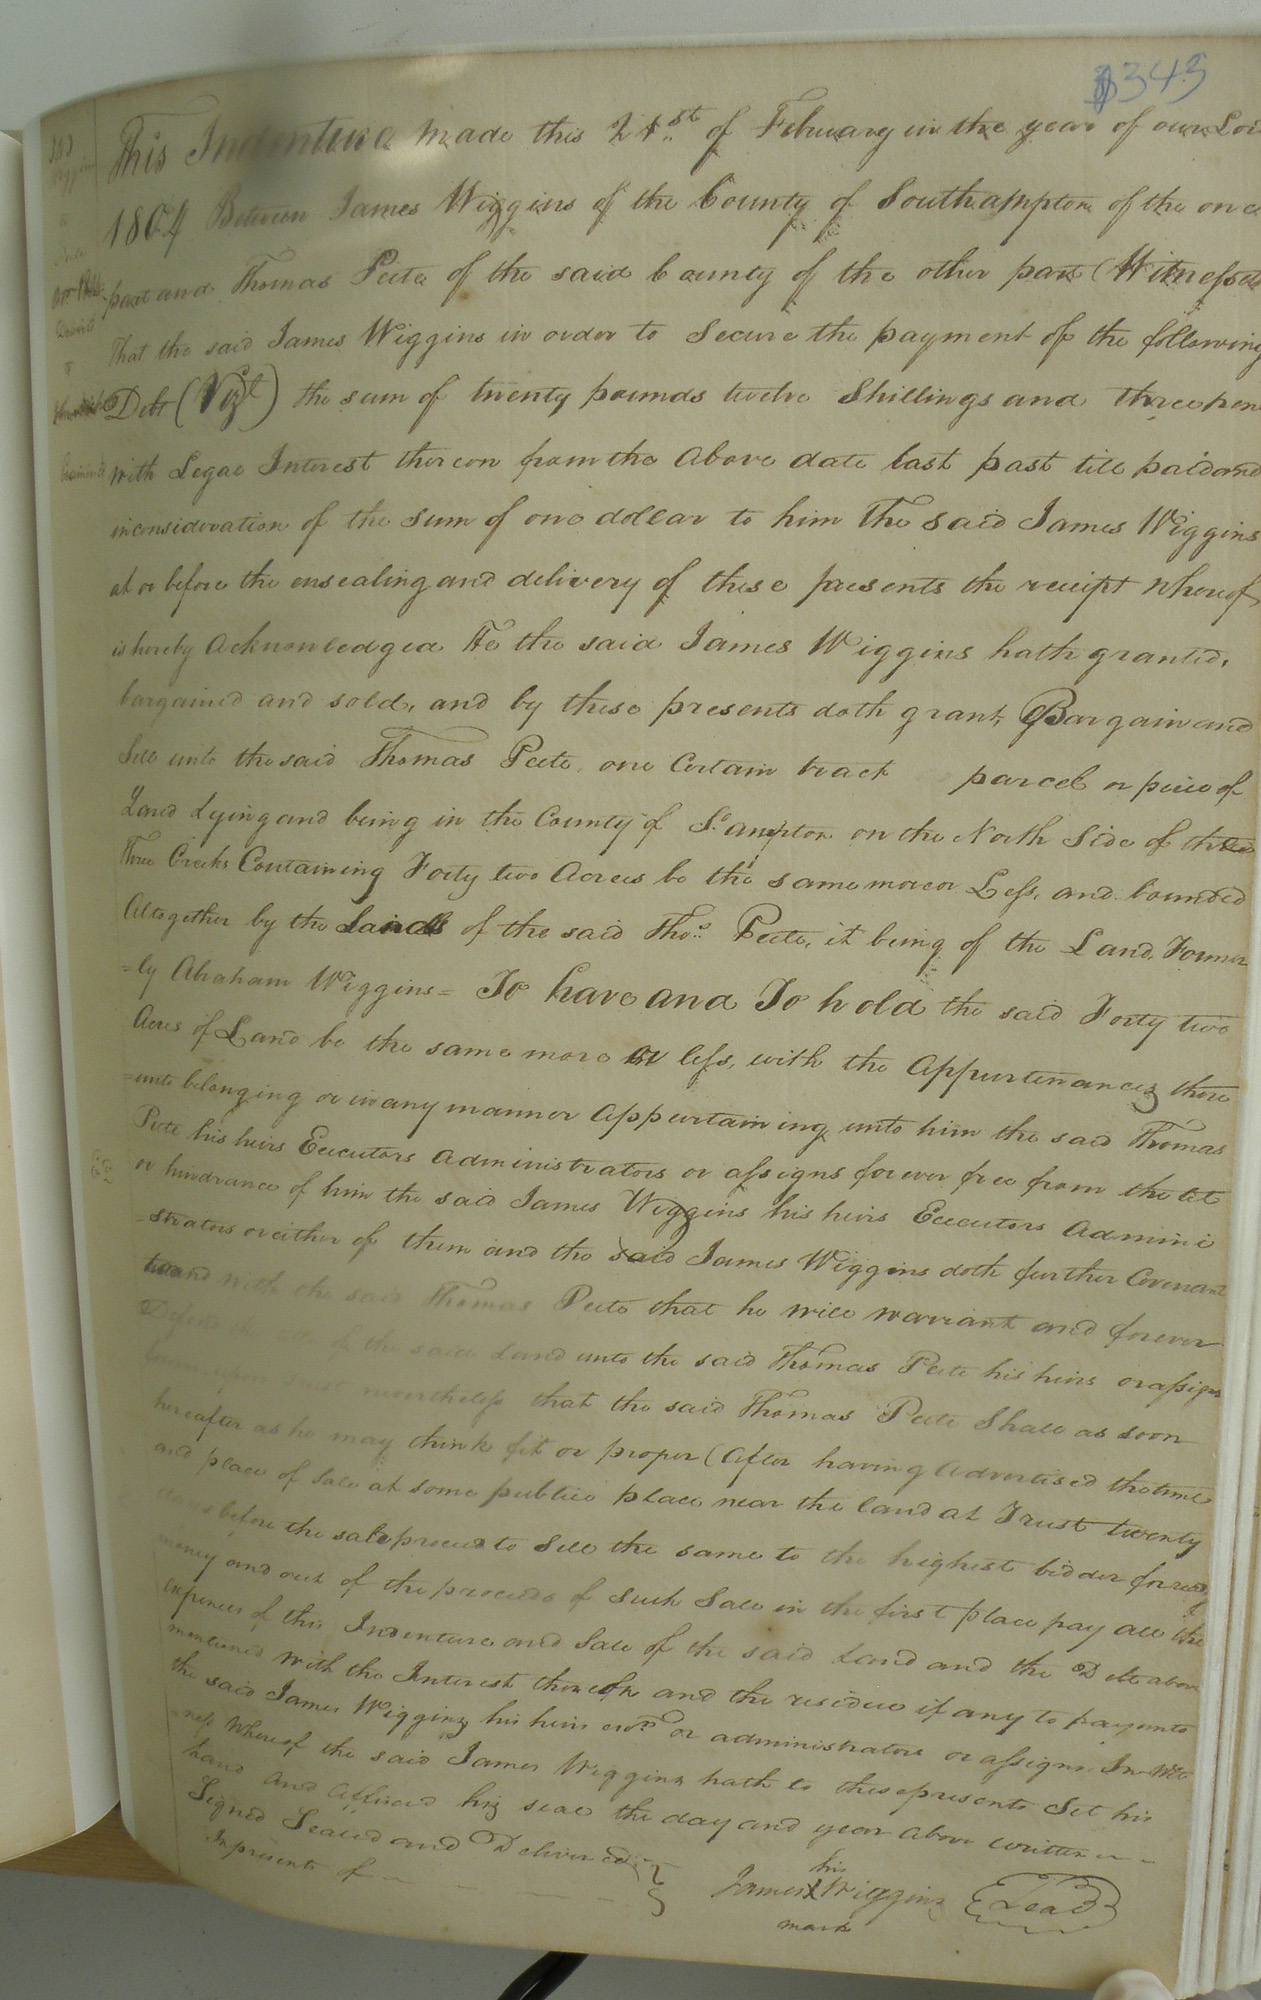 343
This Indenture made this 21st of February in the year of our Lord
1804 Between James Wiggins of the County of Southampton of the one
part and Thomas Peete of the said County of the other part (Witnesseth
That the said James Wiggins in order to Secure the payment of the following
Debt (Vizt) the sum of twenty pounds twelve Shillings and three pen
with Legal Interest thereon from the above date last past till paid and
in consideration of the sum of one dollar to him the said James Wiggins
at or before the ensealing and delivery of these presents the receipt whereof
is hereby Acknowledged He the said James Wiggins hath granted,
bargained and sold, and by these presents doth grant, Bargain and
Sell unto the said Thomas Peete, one Certain tract parcel or piece of
Land Lying and being in the County of So.ampton on the North Side of three
Three Creeks Containing Forty two Acres be the same more or Less, and bounded
Altogether by the Lands of the said Thos. Peete, it being of the Land, Former
=ly Abraham Wiggins= To have and To hold the said Forty two
Acres of Land be the same more or less, with the Appurtenances there
=unto belonging or in any manner Appurtaining unto him the said Thomas
Peete his heirs Executors Administrators or assigns forever free from the let
or hindrance of him the said James Wiggins his heirs Executors Admini
-strators or either of them and the said James Wiggins doth further Covenant
to and with the said Thomas Peete that he will warrant and forever
Defend of the said Land unto the said Thomas Peete his heirs or assigns
upon trust nevertheless that the said Thomas Peete Shall as soon
hereafter as he may think fit or proper (After having Advertised the time
and place of Sale at some publice place near the land at Trust twenty
days before the sale proceed to Sell the same to the highest bidder for ready
money and out of the proceeds of Such Sale in the first place pay all the
expences of this Indenture and Sale of the said Land and the Debt above
mentioned with the Interest thereon and the residue if any to pay unto
the said James Wiggins his heirs exors or administrators or assigns In wit
=ness Whereof the said James Wiggins hath to these presents Set his
hand and Affixed his seal the day and year above written
Signed Sealed and Delivered
In presents of
his
James X Wiggins Seal
mark